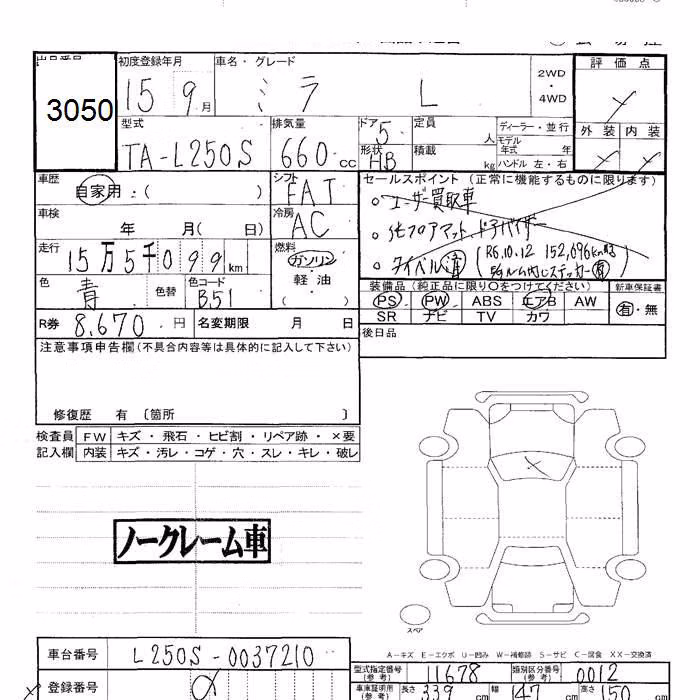 初度登録年月 車名・グレード 評価点
3050 15 年 9 月 ミラ L 2WD・4WD
型式 排気量 ドア 5 定員 人 ディーラー・並行 外装 内装
TA-L250S 660 cc 形状 HB 積載 kg モデル年式 年 ハンドル 左・右
車歴 自家用:( ) シフト FAT セールスポイント (正常に機能するものに限ります)
車検 年 月( 日) 冷房 AC 。ユーザー買取車
走行 15万5千099km 燃料 ガソリン・軽油・ 。純正フロアマット、ドアバイザー
。タイベル済 (R6.10.12 152,096km時
ルーム内にステッカー有)
色 青 色替 色コード B51 装備品 (純正品に限り○をつけてください) 新車保証書
PS PW ABS エアB AW 有・無
SR ナビ TV カワ
R券 8,670 円 名変期限 月 日 後日品
注意事項申告欄 (不具合内容等は具体的に記入して下さい)
修復歴 有 〔箇所 〕
検査員 FW キズ・飛石・ヒビ割・リペア跡・×要
記入欄 内装 キズ・汚レ・コゲ・穴・スレ・キレ・破レ
ノークレーム車
スペア
A-キズ E-エクボ U-凹み W-補修跡 S-サビ C-腐食 XX-交換済
車台番号 L250S-0037210 型式指定番号(参考) 11678 類別区分番号(参考) 0012
登録番号 車庫証明用(参考) 長さ 339 cm 幅 147 cm 高さ 150 cm